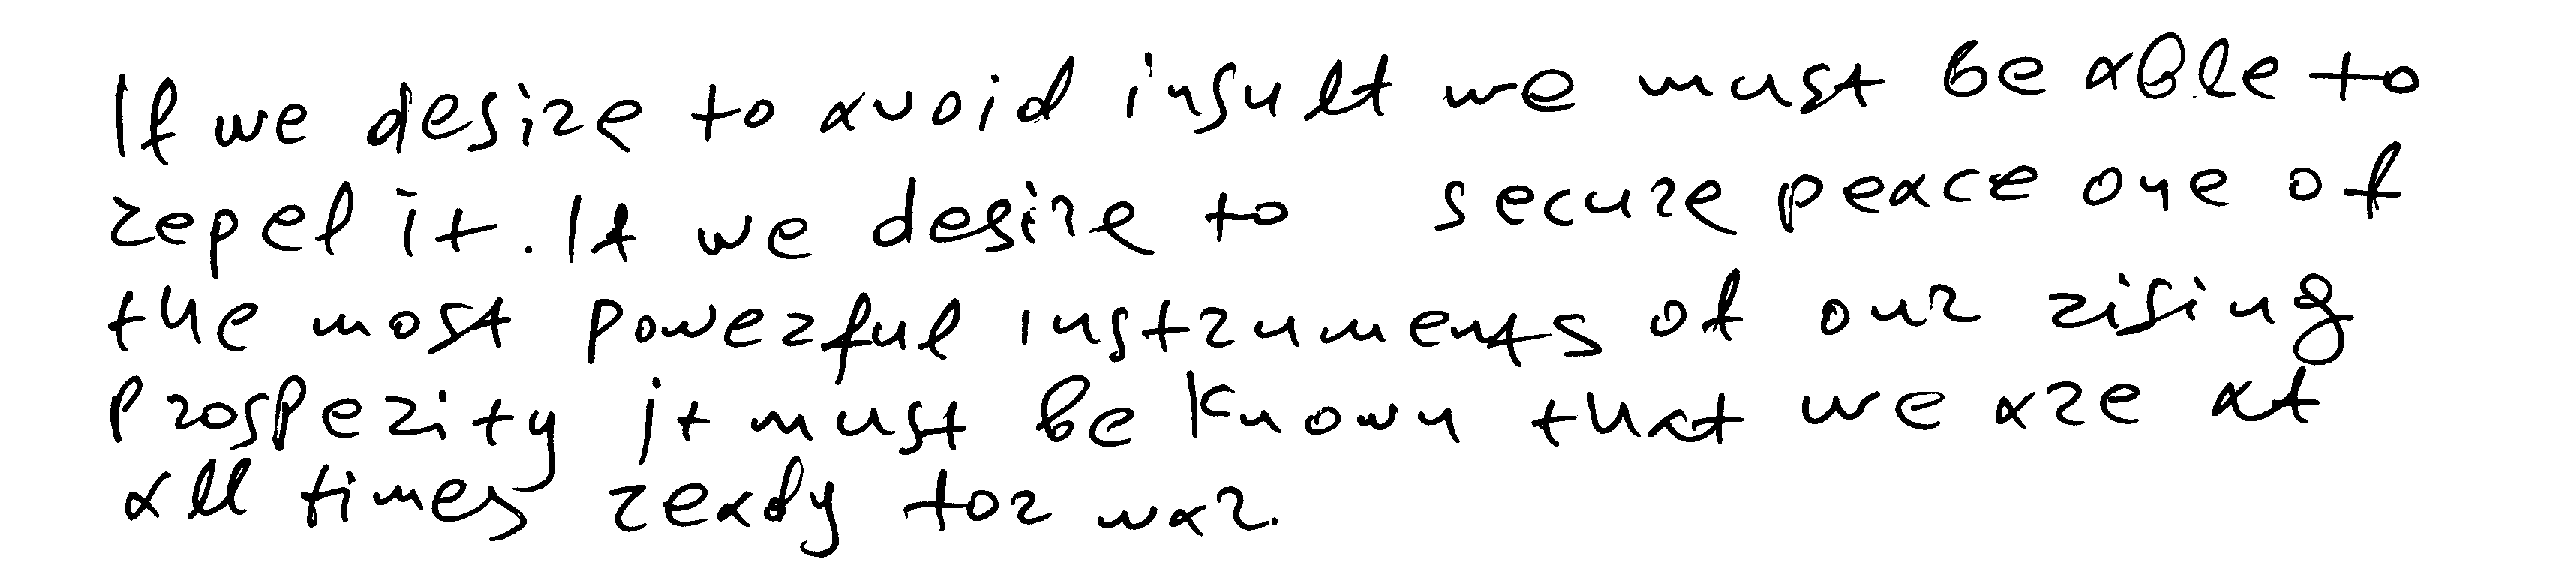 If we desire to avoid insult we must be able to
repel it. If we desire to secure peace one of
the most powerful instruments of our rising
prosperity it must be known that we are at
all times ready for war.